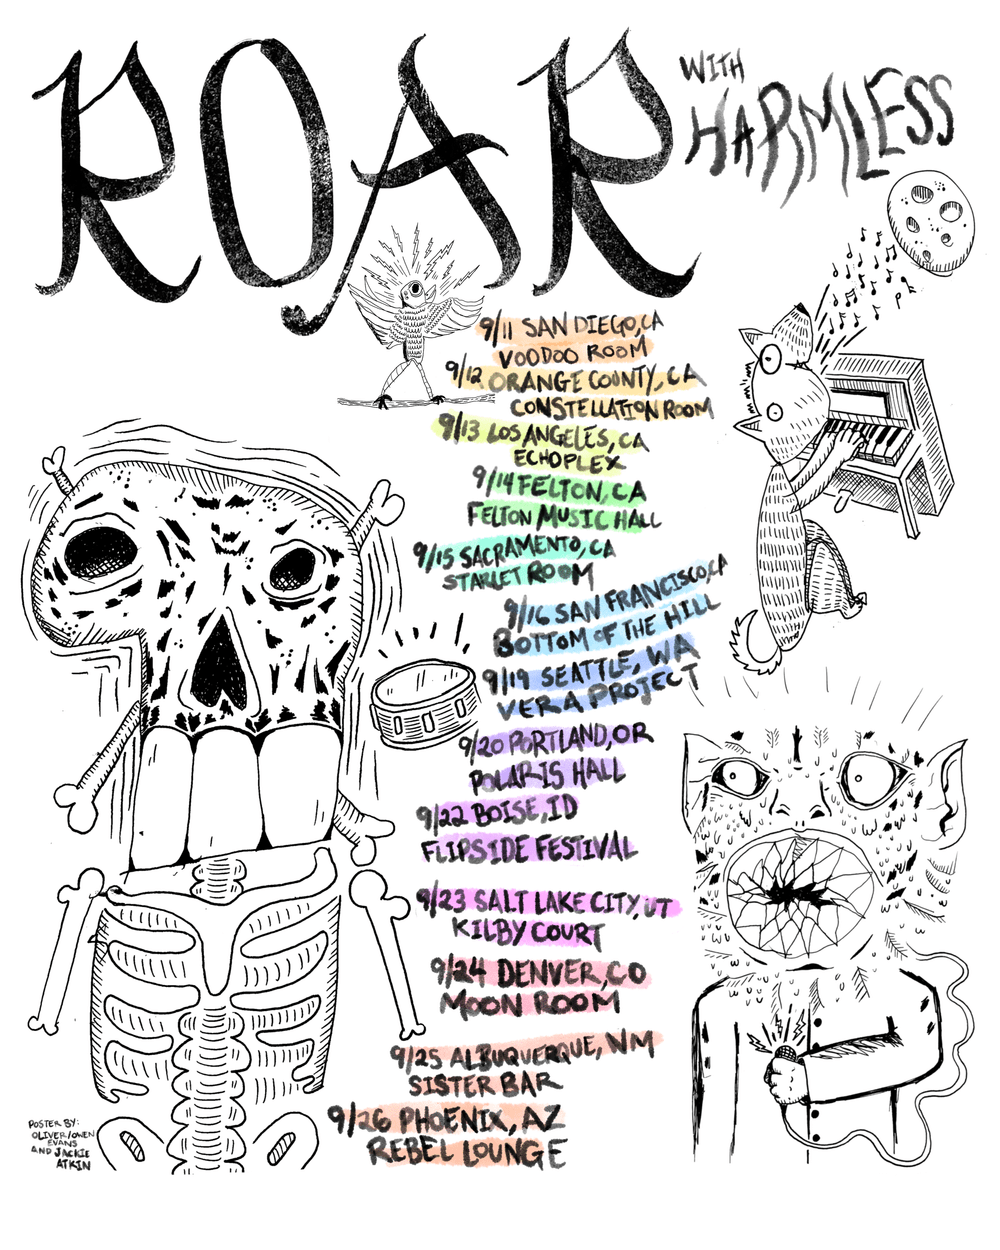 ROAR
WITH
HARMLESS
9/11 SAN DIEGO, CA
VOODOO ROOM
9/12 ORANGE COUNTY, CA
CONSTELLATION ROOM
9/13 LOS ANGELES, CA
ECHOPLEX
9/14 FELTON, CA
FELTON MUSIC HALL
9/15 SACRAMENTO, CA
STARLET ROOM
9/16 SAN FRANCISCO, CA
BOTTOM OF THE HILL
9/19 SEATTLE, WA
VERA PROJECT
9/20 PORTLAND, OR
POLARIS HALL
9/22 BOISE, ID
FLIPSIDE FESTIVAL
9/23 SALT LAKE CITY, UT
KILBY COURT
9/24 DENVER, CO
MOON ROOM
9/25 ALBUQUERQUE, NM
SISTER BAR
9/26 PHOENIX, AZ
REBEL LOUNGE
POSTER BY:
OLIVER/OWEN
EVANS
AND JACKIE
ATKIN